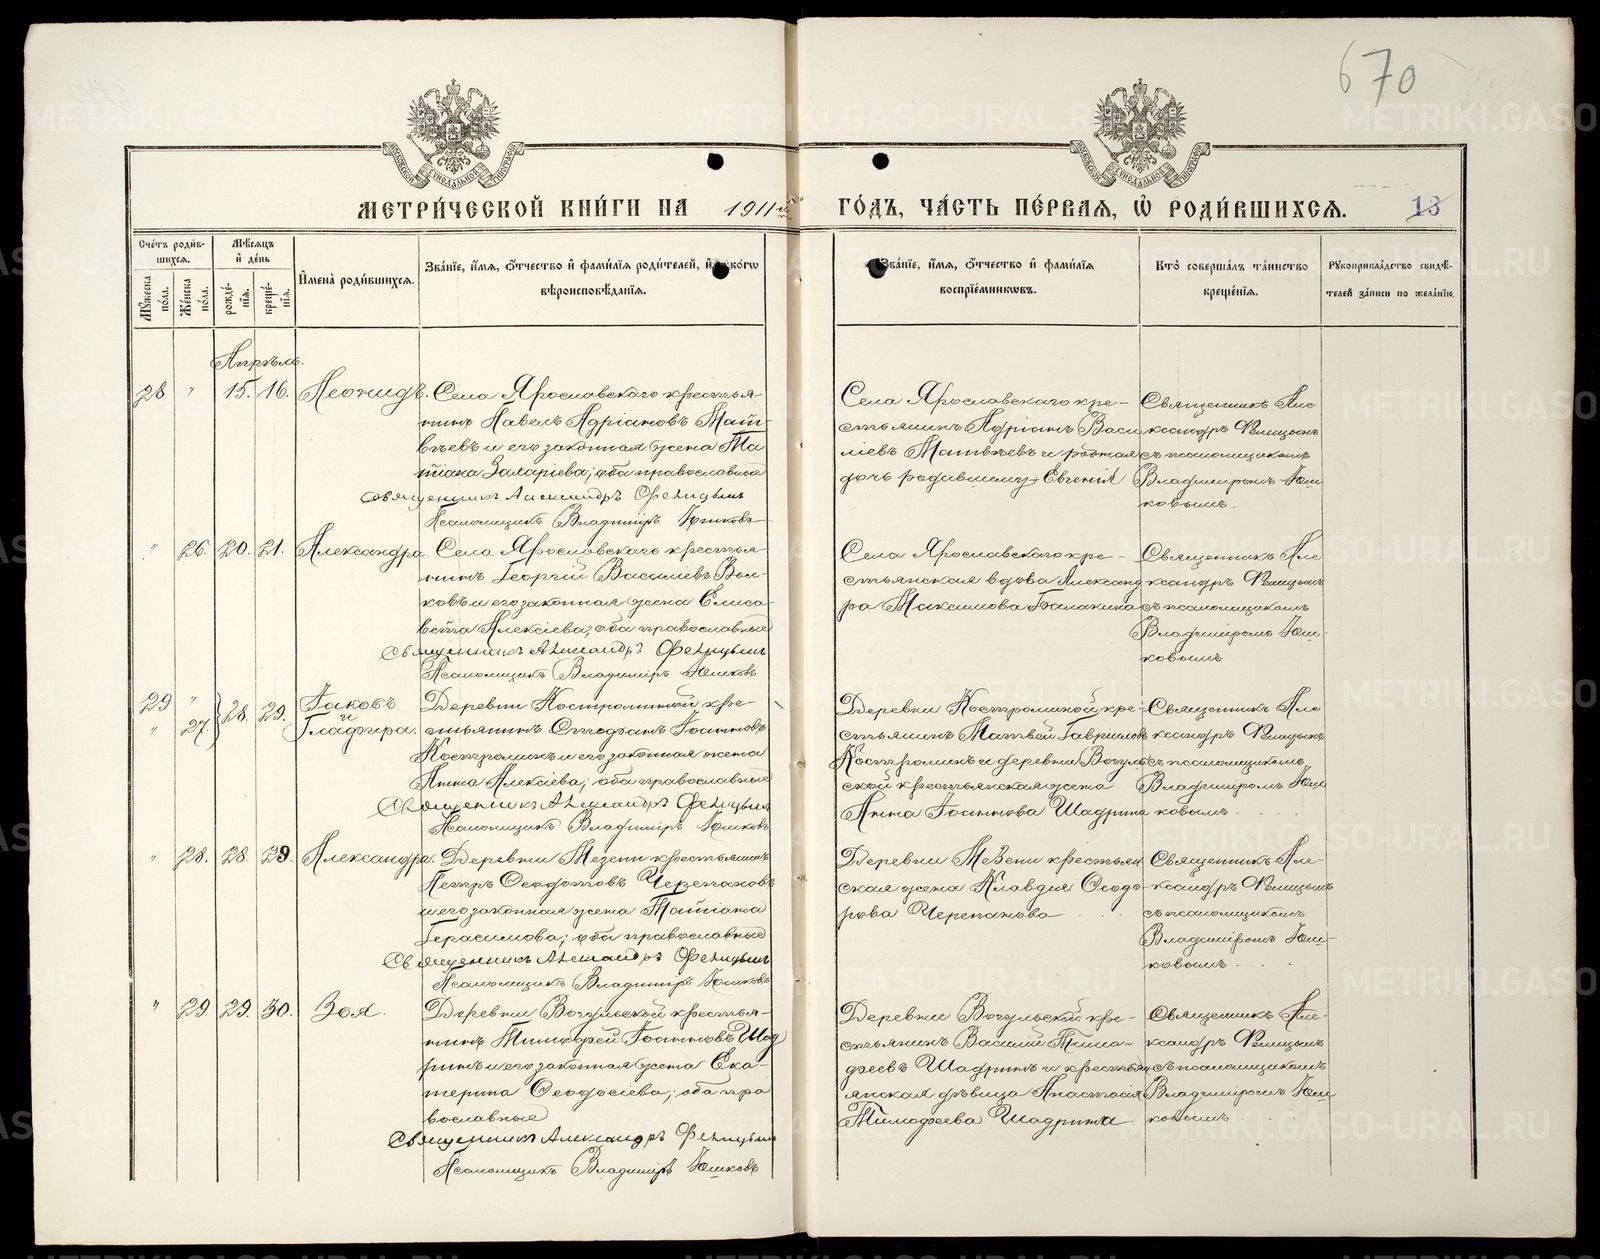 670
МОСКОВСКОЙ СѴНОДАЛЬНОЙ ТИПОГРАФІИ
МОСКОВСКОЙ СѴНОДАЛЬНОЙ ТИПОГРАФІИ
МЕТРИ́ЧЕСКОЙ КНИ́ГИ НА 1911й ГО́ДЪ, ЧА́СТЬ ПЕ́РВАЯ, Ѽ РОДИ́ВШИХСЯ.
13
Сче́тъ роди́в-
шихся.
Мѣ́сяцъ
и҆ де́нь
Му́жеска по́ла.
Же́нска по́ла.
рожде́-
нїя.
креще́-
нїя.
И҆мена̀ роди́вшихся.
Зва́нїе, и҆́мя, ѻ҆́тчество и҆ фами́лїя роди́телей, и҆ како́гѡ
вѣроисповѣ́данїя.
Зва́нїе, и҆́мя, ѻ҆́тчество и҆ фами́лїя
воспрїе́мникѡвъ.
Кто̀ соверша́лъ та́инство
креще́нїя.
Рꙋкоприкла́дство свидѣ́-
телей за́писи по жела́нїю.
Апрѣль.
28 " 15. 16. Леонидъ.
Села Ярославскаго крестья-
нинъ Павелъ Адріановъ Мат-
вѣевъ и его законная жена Та
тіана Захаріева; оба православные
Священникъ Александръ Феницынъ
Псаломщикъ Владиміръ Юшковъ
Села Ярославскаго кре-
стьянинъ Адріанъ Васи
ліевъ Матвѣевъ и родная
дочь родившему Евгенія
Священникъ Але
ксандръ Феницынъ
съ псаломщикомъ
Владиміромъ Юш
ковымъ.
" 26. 20. 21. Александра
Села Ярославскаго крестья-
нинъ Георгій Василіевъ Вол-
ковъ и его законная жена Елиса-
вета Алексіева; оба православные
Священникъ Александръ Феницынъ
Псаломщикъ Владиміръ Юшковъ
Села Ярославскаго кре-
стьянская вдова Александ
ра Максимова Балакина
Священникъ Але
ксандръ Феницынъ
съ псаломщикомъ
Владиміромъ Юш-
ковымъ
29 " 28. 29. Іаковъ
и
" 27. Глафира.
Деревни Костроминой кре-
стьянинъ Стефанъ Іоанновъ
Костроминъ и его законная жена
Анна Алексіева; оба православные
Священникъ Александръ Феницынъ
Псаломщикъ Владиміръ Юшковъ
Деревни Костроминой кре-
стьянинъ Матвей Гавриловъ
Костроминъ и деревни Вогуль
ской крестьянская жена
Анна Іоаннова Шадрина
Священникъ Але
ксандръ Феницынъ
съ псаломщикомъ
Владиміромъ Юш
ковымъ.
" 28. 28. 29. Александра.
Деревни Мезени крестьянинъ
Петръ Ѳеодотовъ Черепановъ
и его законная жена Татіана
Герасимова; оба православные
Священникъ Александръ Феницынъ
Псаломщикъ Владиміръ Юшковъ
Деревни Мезени крестьян
ская жена Клавдія Ѳеодо
рова Черепанова
Священникъ Але-
ксандръ Феницынъ
съ псаломщикомъ
Владиміромъ Юш-
ковымъ.
" 29 29. 30. Зоя.
Деревни Вогульской крестья-
нинъ Тимофей Іоанновъ Шад
ринъ и его законная жена Ека-
терина Ѳеодосіева; оба пра
вославные
Священникъ Александръ Феницынъ
Псаломщикъ Владиміръ Юшковъ
Деревни Вогульской кре-
стьянинъ Василій Тимо-
феевъ Шадринъ и крестья
янская дѣвица Анастасія
Тимофеева Шадрина
Священникъ Але-
ксандръ Феницынъ
съ псаломщикомъ
Владиміромъ Юш-
ковымъ.
METRIKI.GASO-URAL.RU